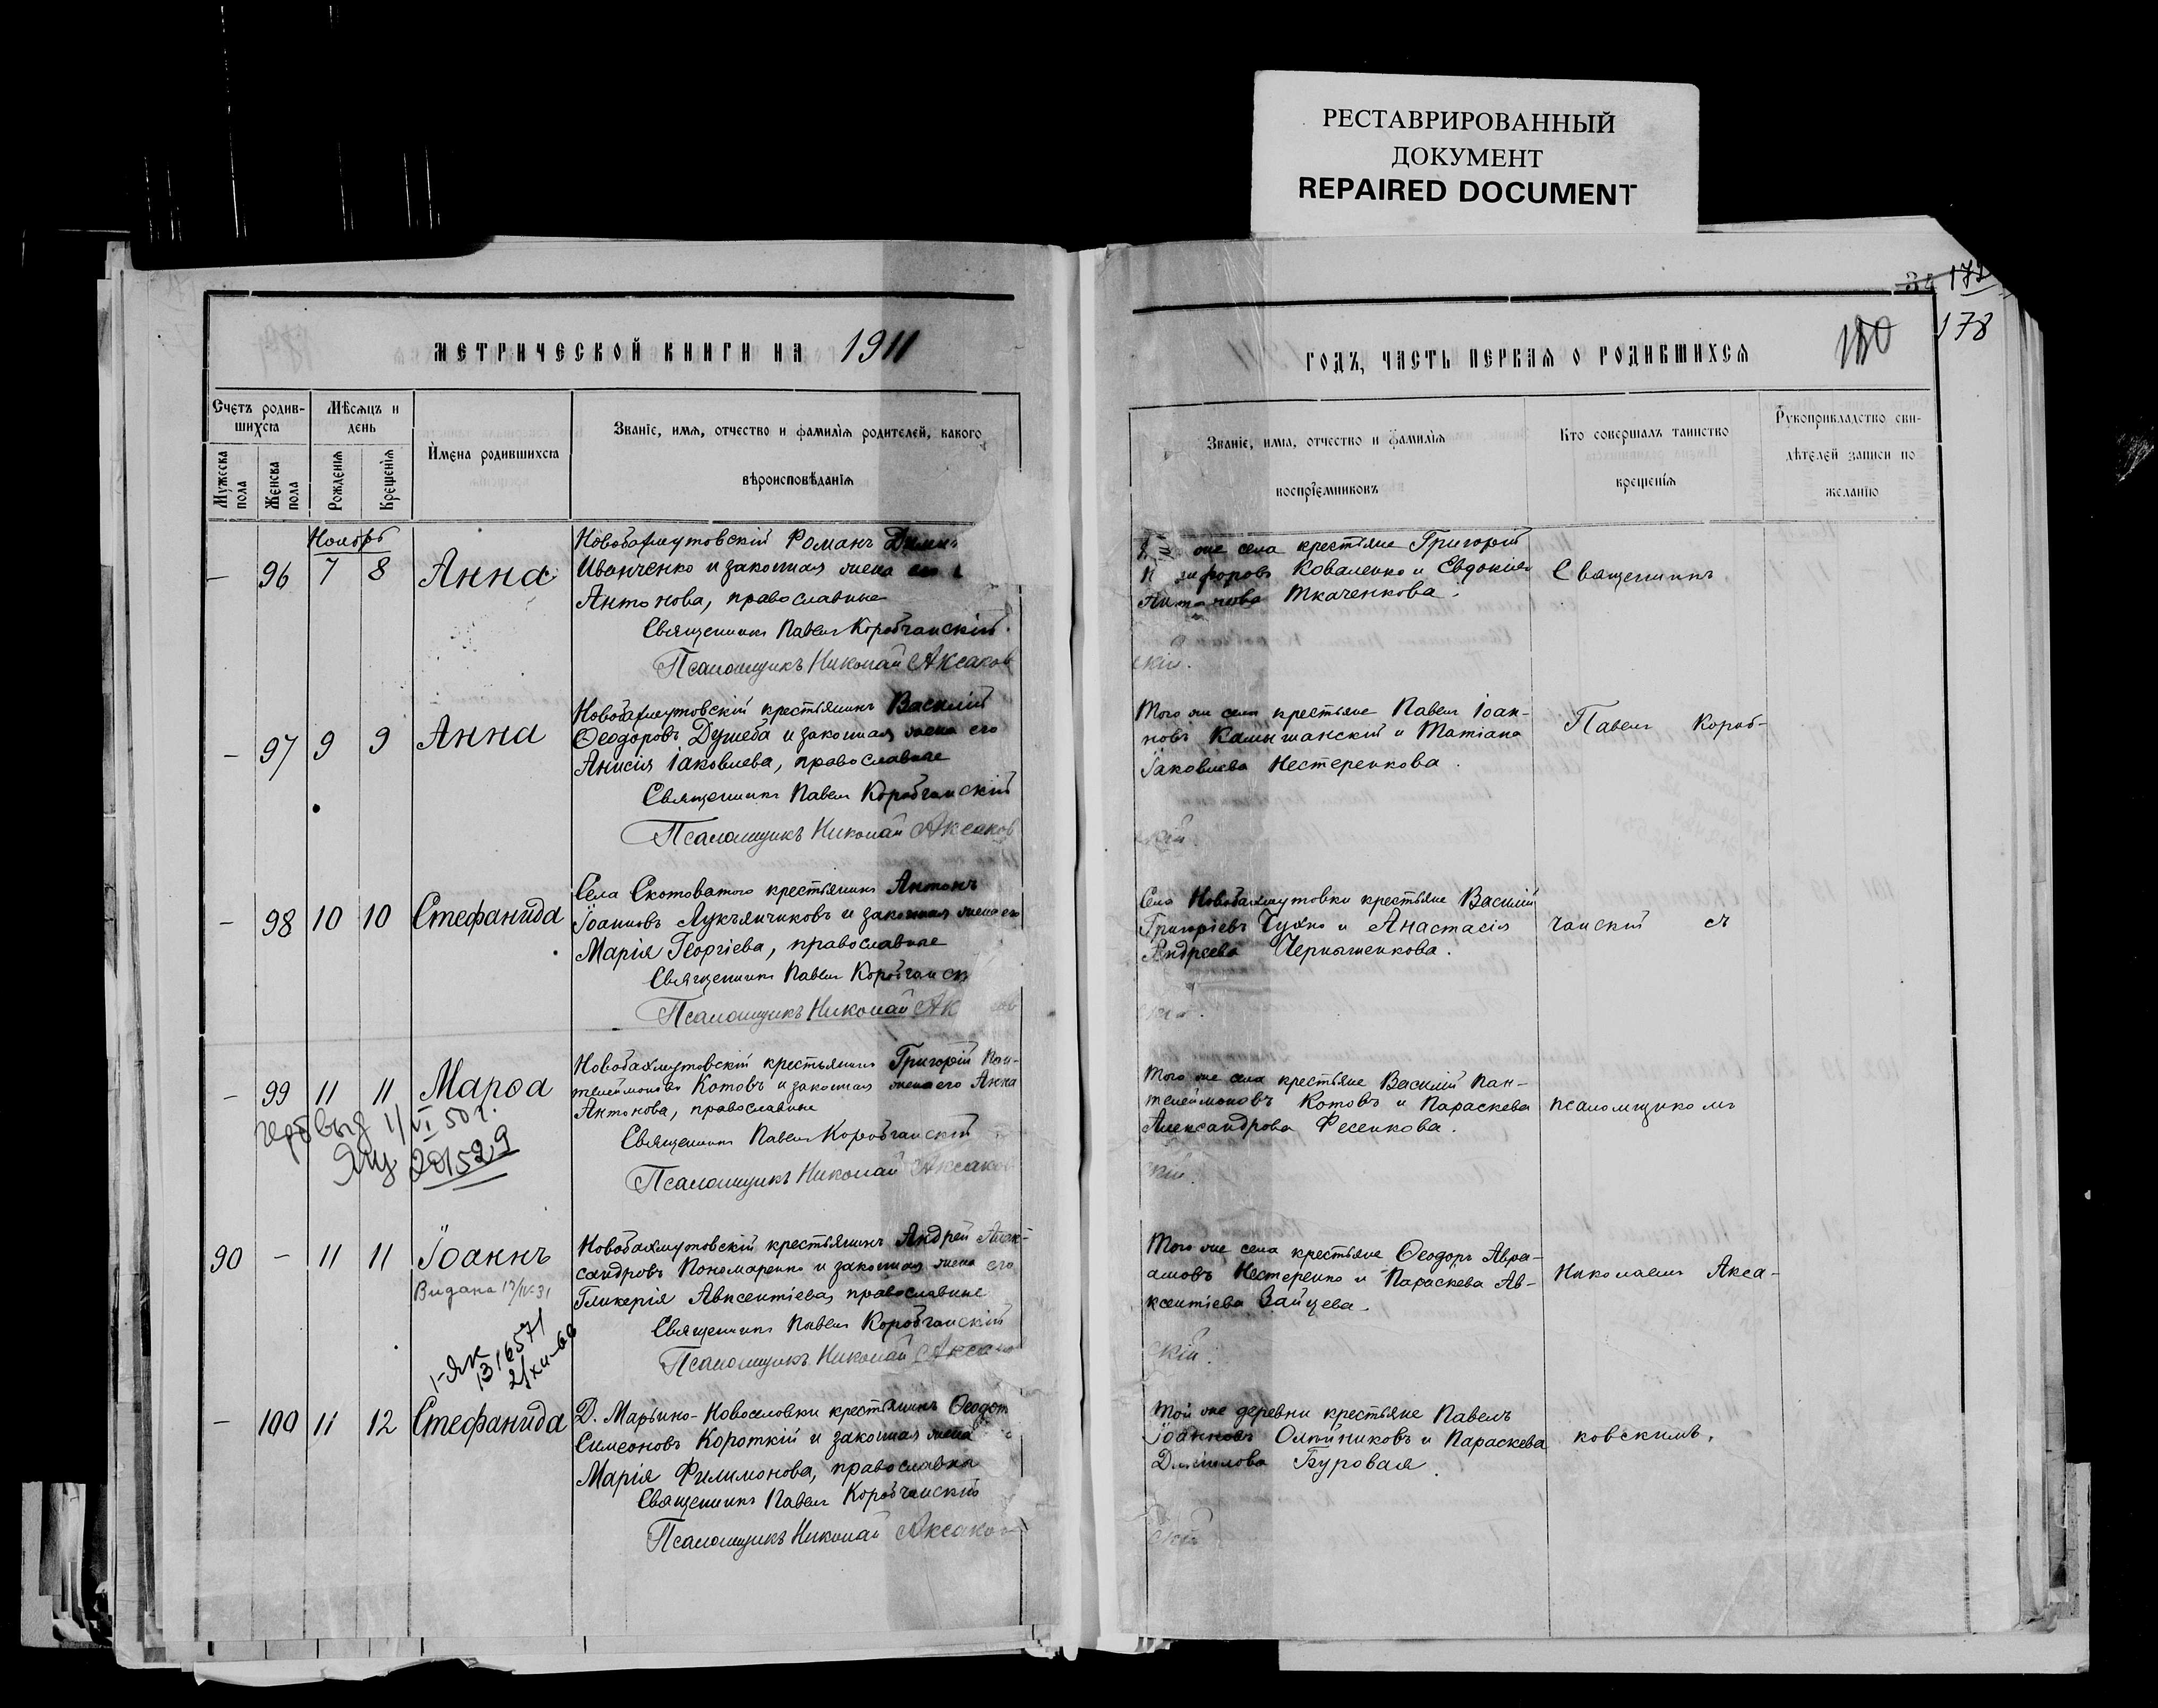 РЕСТАВРИРОВАННЫЙ
ДОКУМЕНТ
REPAIRED DOCUMENT
34 172
178
180
МЕТРИЧЕСКОЙ КНИГИ НА 1911
ГОДЪ, ЧАСТЬ ПЕРВАЯ О РОДИВШИХСЯ
Счетъ родив-
шихся
Мужеска пола
Женска пола
Мѣсяцъ и
день
Рожденія
Крещенія
Имена родившихся
Званіе, имя, отчество и фамилія родителей, какого
вѣроисповѣданія
Званіе, имя, отчество и фамилія
воспріемниковъ
Кто совершалъ таинство
крещенія
Рукоприкладство сви-
дѣтелей записи по
желанію
Ноябрь
— 96 7 8 Анна
Новобахмутовскій Романъ
Иванченко и законная жена его
Антонова, православные
Священникъ Павелъ Коробчанскій.
Псаломщикъ Николай Аксаков
же села крестьяне Григорій
Коваленко и Евдокія
Ткаченкова.
скій.
Священникъ
— 97 9 9 Анна
Новобахмутовскій крестьянинъ Василій
Ѳеодоровъ Душеба и законная жена его
Анисія Іаковлева, православные
Священникъ Павелъ Коробчанскій
Псаломщикъ Николай Аксаков
Того же села крестьяне Павелъ Іоан-
новъ Камышанскій и Татіана
Іаковлева Нестеренкова.
скій.
Павелъ Короб-
— 98 10 10 Стефанида
Села Скотоватого крестьянинъ Антонъ
Іоанновъ Лукьянчиковъ и законная жена его
Марія Георгіева, православные
Священникъ Павелъ Коробчанск
Псаломщикъ Николай Ак сов
Села Новобахмутовки крестьяне Василій
Григоріевъ Чухно и Анастасія
Андреева Чернышенкова.
скій.
чанскій съ
— 99 11 11 Марѳа
Новобахмутовскій крестьянинъ Григорій Пан-
телеймоновъ Котовъ и законная жена его Анна
Антонова, православные
Священникъ Павелъ Коробчанскій
Псаломщикъ Николай Аксаков
1/VI 50 г.
201529
Того же села крестьяне Василій Пан-
телеймоновъ Котовъ и Параскева
Александрова Фесенкова.
скій.
псаломщикомъ
90 — 11 11 Іоаннъ
Видана 17/IV-31
1-ЯК
1316571
21/XII-66
Новобахмутовскій крестьянинъ Андрей Алек-
сандровъ Пономаренко и законная жена его
Гликерія Авксентіева, православные
Священникъ Павелъ Коробчанскій
Псаломщикъ Николай Аксаков
Того же села крестьяне Ѳеодоръ Авра-
амовъ Нестеренко и Параскева Ав-
ксентіева Зайцева.
скій.
Николаемъ Акса-
— 100 11 12 Стефанида
Д. Марьино-Новоселовки крестьянинъ Ѳеодот
Симеоновъ Короткій и законная жена
Марія Филимонова, православна
Священникъ Павелъ Коробчанскій
Псаломщикъ Николай Аксаков
Той же деревни крестьяне Павелъ
Іоанновъ Олейниковъ и Параскева
Даніилова Буровая.
скій
ковскимъ.